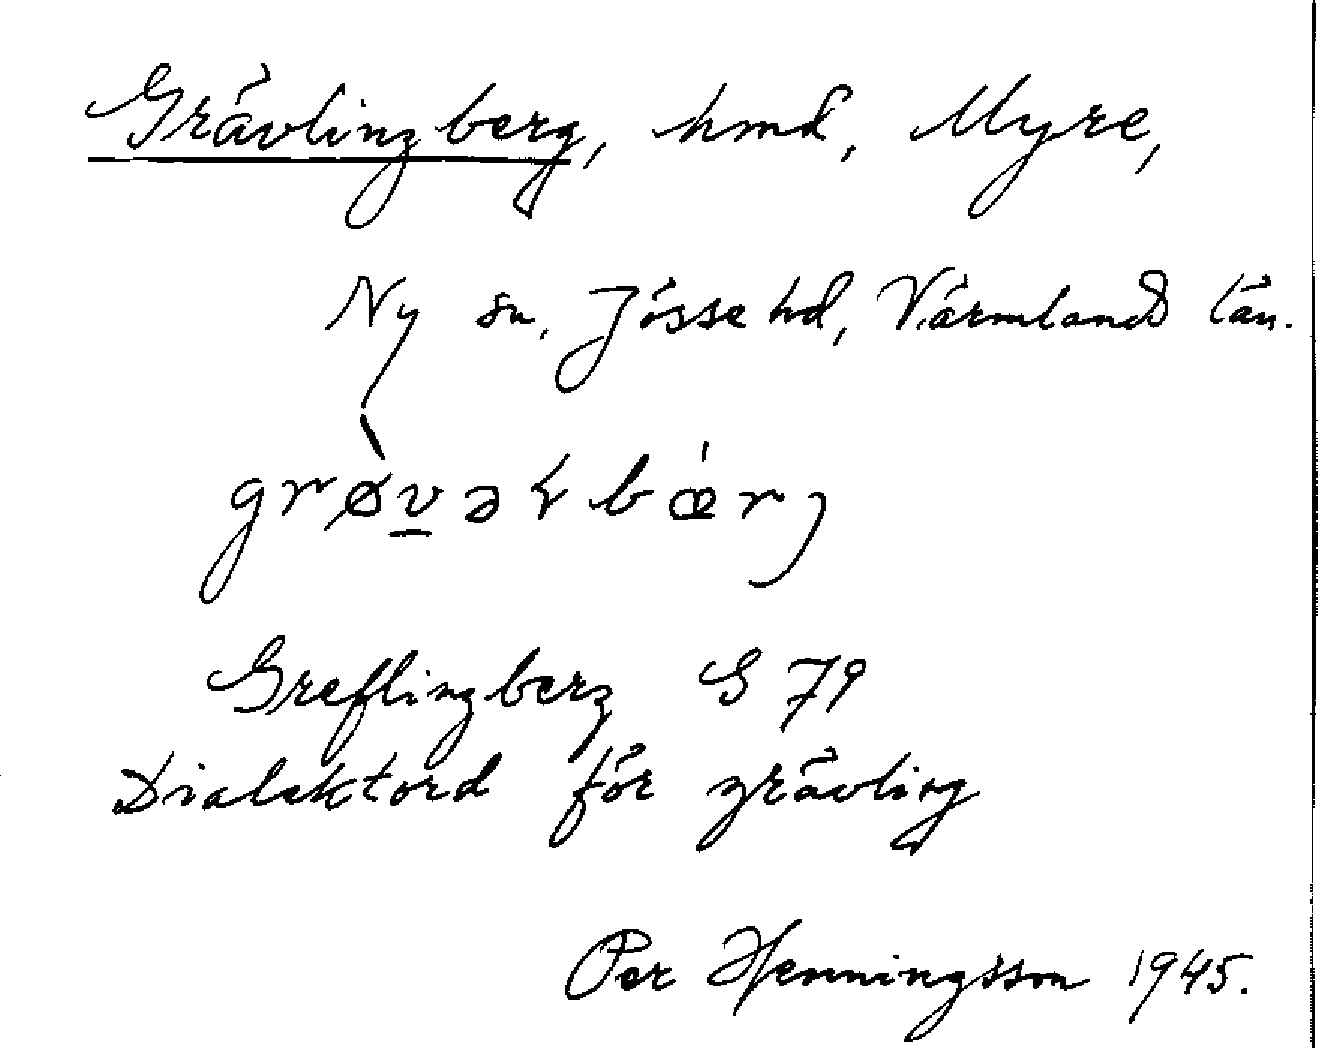 Grävlingberg, hmd, Myre,
Ny sn, Jösse hd, Värmlands län.
Greflingberg G 79
Dialektord för grävling
Per Henningsson 1945.